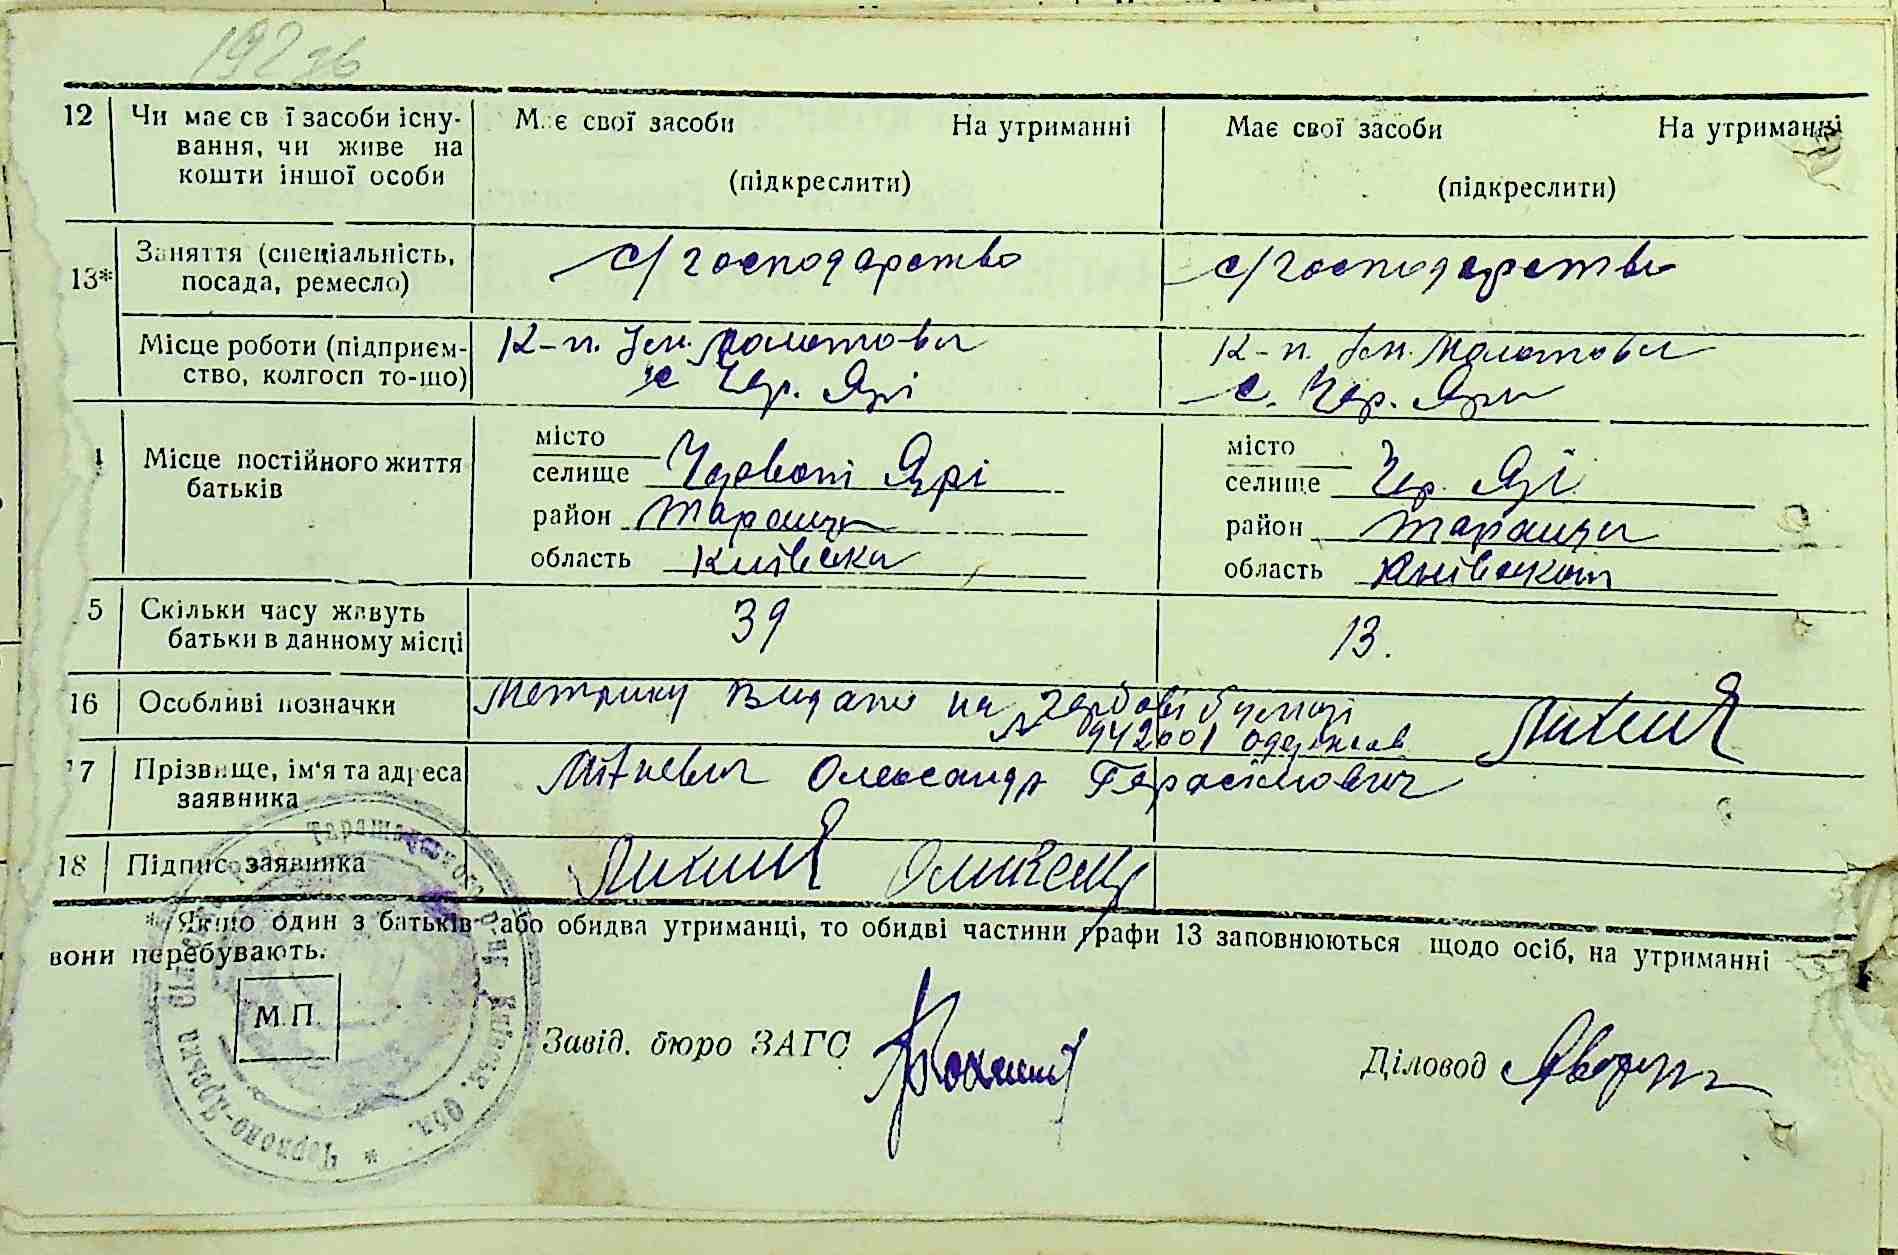 192 зв
12 Чи має св ї засоби існу- М є свої засоби На утриманні Має свої засоби На утриманні
вання, чи живе на
кошти іншої особи (підкреслити) (підкреслити)
13* Заняття (спеціальність, с/господарство с/господарство
посада, ремесло)
Місце роботи (підприєм- К-п. Ім. Молотова К-п. Ім. Молотова
ство, колгосп то-що) с Чер. Ярі с. Чер. Яри
місто місто
Місце постійного життя селище Червоні Ярі селище Чер. Яі
батьків район Тараща район Тараща
область Київська область
5 Скільки часу живуть 39 13.
батьки в данному місці
16 Особливі позначки Метрику видано на гербові бумазі
942001 одержав
7 Прізвище, ім'я та адреса Олександр Герасімович
заявника
18 Підпис заявника
* Якщо один з батьків або обидва утриманці, то обидві частини графи 13 заповнюються щодо осіб, на утриманні
вони перебувають.
М.П.
Завід. бюро ЗАГС Діловод
Червоно-Ярська Сільс Рада Таращанського р-ну Київськ. Обл. *